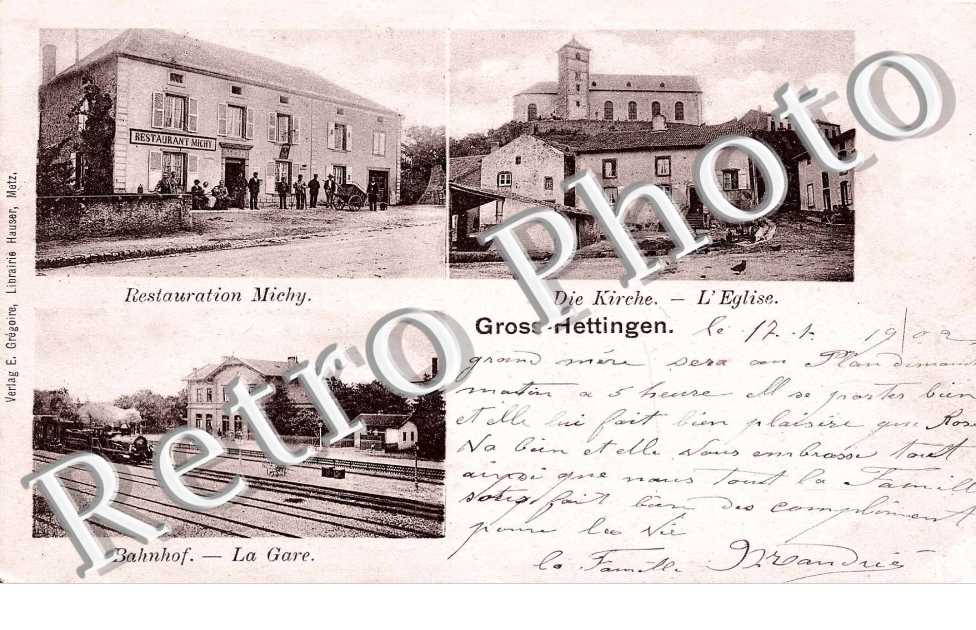 RESTAURANT MICHY
Restauration Michy.
Die Kirche. — L'Eglise.
Verlag E. Grégoire, Librairie Hauser, Metz.
Gross-Hettingen.
le 17. 1. 1902
grand mére sera au Plan demain
matin a 5 heure ell se porter bien
et elle lui fait bien plaisire que Rosa
Va bien et elle Vous embrasse tout
ainsi que nous tout la Famille
vous fait bien des compliment
pour la vie
la Famille
Bahnhof. — La Gare.
Retro Photo